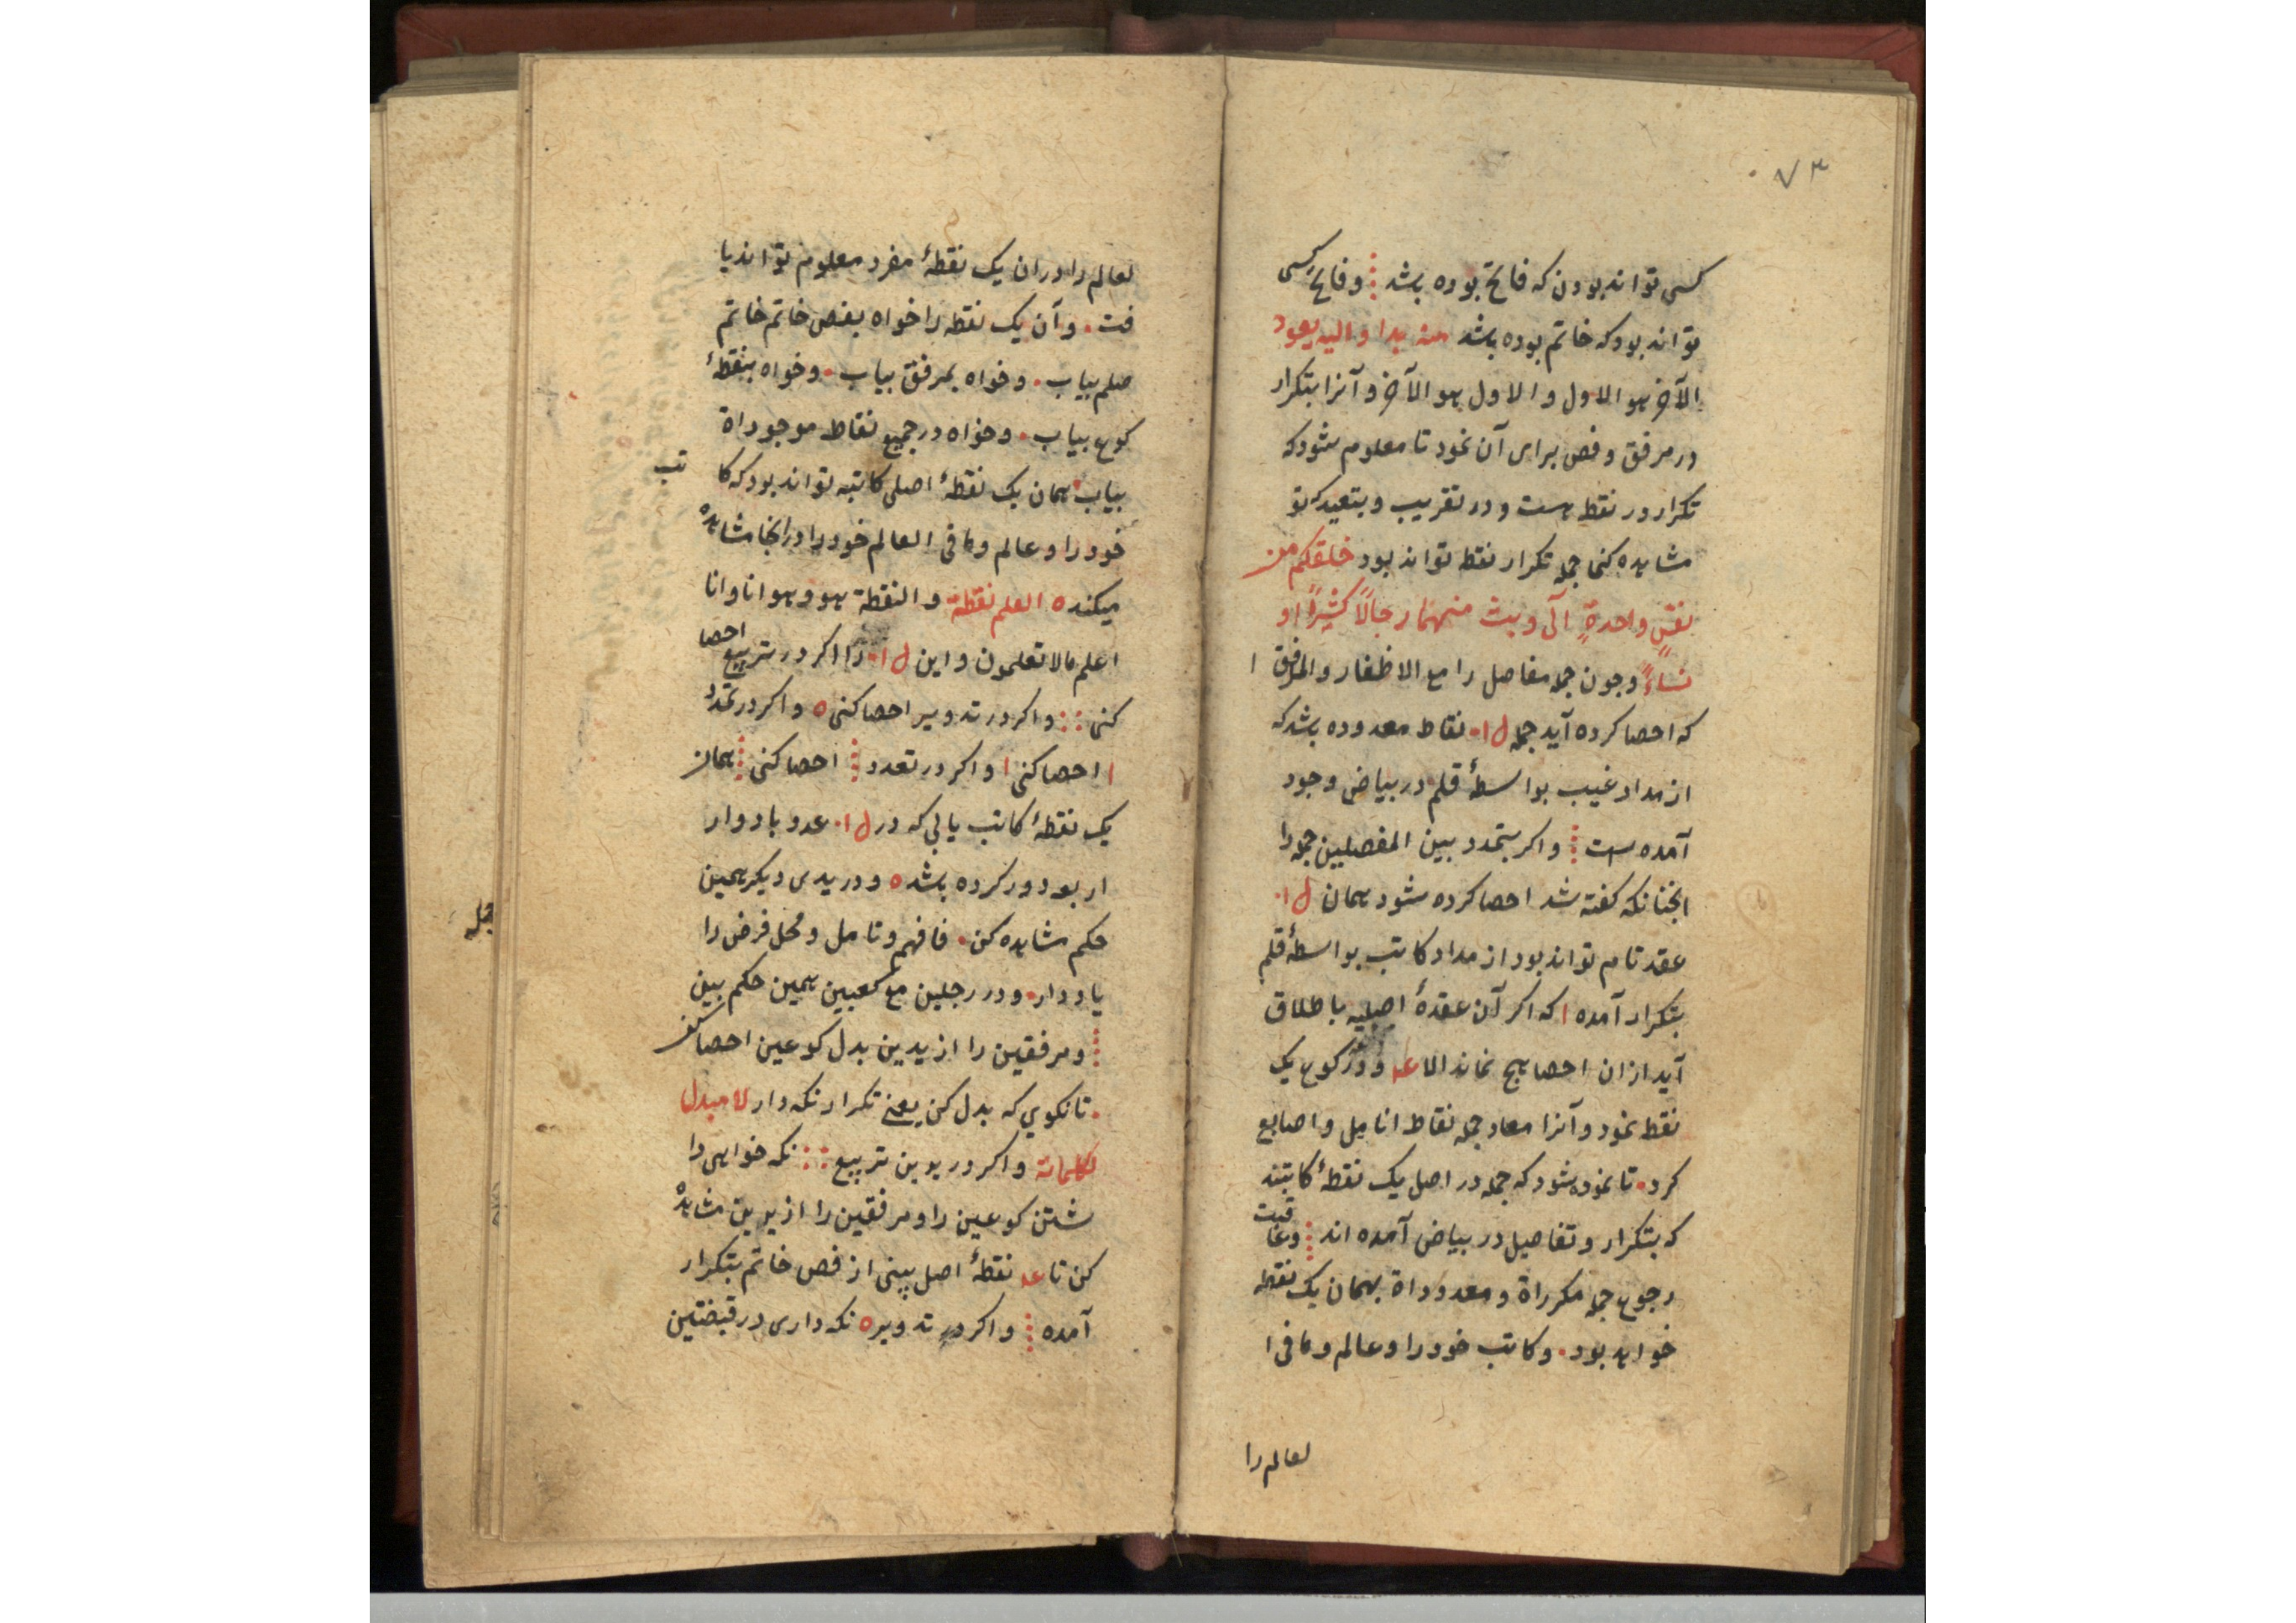 ٧٣
كسى تواند بودن كه فاتح بوده باشد ⁞ و فاتح كسى
تواند بود كه خاتم بوده باشد منه بدا و اليه يعود
الآخر هو الاول و الاول هو الآخر و آنرا بتكرار
در مرفق و فص براى آن نمود تا معلوم شود كه
تكرار در نقط هست و در تقريب و بتعيد كه تو
مشاهده كنى جمله تكرار نقط تواند بود خلقكم من
نفسٍ واحدةٍ الى و بث منهما رجالاً كثيراً او
نساءً و جون جمله مفاصل را مع الاظفار و المرفق ا
كه احصا كرده آيد جمله ل ا٠ نقاط معدوده باشد كه
از مداد غيب بواسطهٔ قلم در بياض وجود
آمده است ⁞ و اكر بتمدد بين المفصلين جمله را
انجنانكه كفته شد احصا كرده شود همان ل ا٠
عقد تام تواند بود از مداد كاتب بواسطهٔ قلم
بتكرار آمده ا كه اكر آن عقدهٔ اصليه باطلاق
آيد ازان احصا هيج نماند الا عد و در كوع يک
نقط نمود و آنرا معاد جمله نقاط انامل و اصابع
كرد ٠ تا نموده شود كه جمله در اصل يک نقطهٔ كاتبند
كه بتكرار و تفاصيل در بياض آمده اند ⁞ و عاقبت
رجوع جمله مكرراة و معدوداة بهمان يک نقطه
خواهد بود ٠ و كاتب خود را و عالم و ما فى ا
لعالم را
لعالم را دران يک نقطهٔ مفرد معلوم تواند يا
فت ٠ و آن يک نقطه را خواه بفص خاتم خاتم
صلم بياب ٠ و خواه بمرفق بياب ٠ و خواه بنقطهٔ
كوع بياب ٠ و خواه در جميع نقاط موجوداة
بياب ٠ همان يک نقطهٔ اصلى كاتبه تواند بود كه كا تب
خود را و عالم و ما فى العالم خود را در انجا مشاهده
ميكند ه العلم نقطة و النقطة هو و هو انا و انا
اعلم ما لا تعلمون و اين ل ا٠ را اكر در تربيع احصا
كنى :: و اكر در تدوير احصا كنى ه و اكر در تمدد
ا احصا كنى ا و اكر در تعدد ⁞ احصا كنى ⁞ همان
يک نقطهٔ كاتب يابى كه در ل ا٠ عدو بادوار
ار بعد دور كرده باشد ه و در يدى ديكر همين
حكم مشاهده كن ٠ فافهم و تامل و محل فرض را
ياد دار ٠ و در رجلين مع كعبين همين حكم ببين
⁞ و مرفقين را از يدين بدل كوعين احصا كن
٠ تا نكويى كه بدل كن يعنى تكرار نكه دار لا مبدل
لكلماته و اكر در يدين تربيع :: نكه خواهى دا
شتن كوعين را و مرفقين را از يدين مشاهده
كن تا عد نقطهٔ اصل ببينى از فص خاتم بتكرار
آمده ⁞ و اكر در تدوير ه نكه دارى در قبضتين
جمله